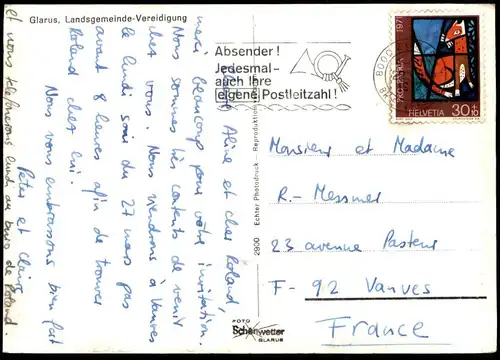 Glarus, Landsgemeinde-Vereidigung
Chère Aline et cher Roland,
merci beaucoup pour votre invitation.
Nous sommes très contents de venir
chez vous. Nous viendrons à Vanves
le lundi soir du 27 mars pas
avant 8 heures afin de trouver
Roland chez lui.
Nous vous embrassons bien fort
Peter et Claire
et nous téléphonerons lundi au buro de Roland.
Absender!
Jedesmal-
auch Ihre
eigene Postleitzahl!
8000
PRO PATRIA 1971
HELVETIA 30+10
2900 Echter Photodruck - Reproduktion
FOTO
Schönwetter
GLARUS
Monsieur et Madame
R. - Messmer
23 avenue Pasteur
F - 92 Vanves
France